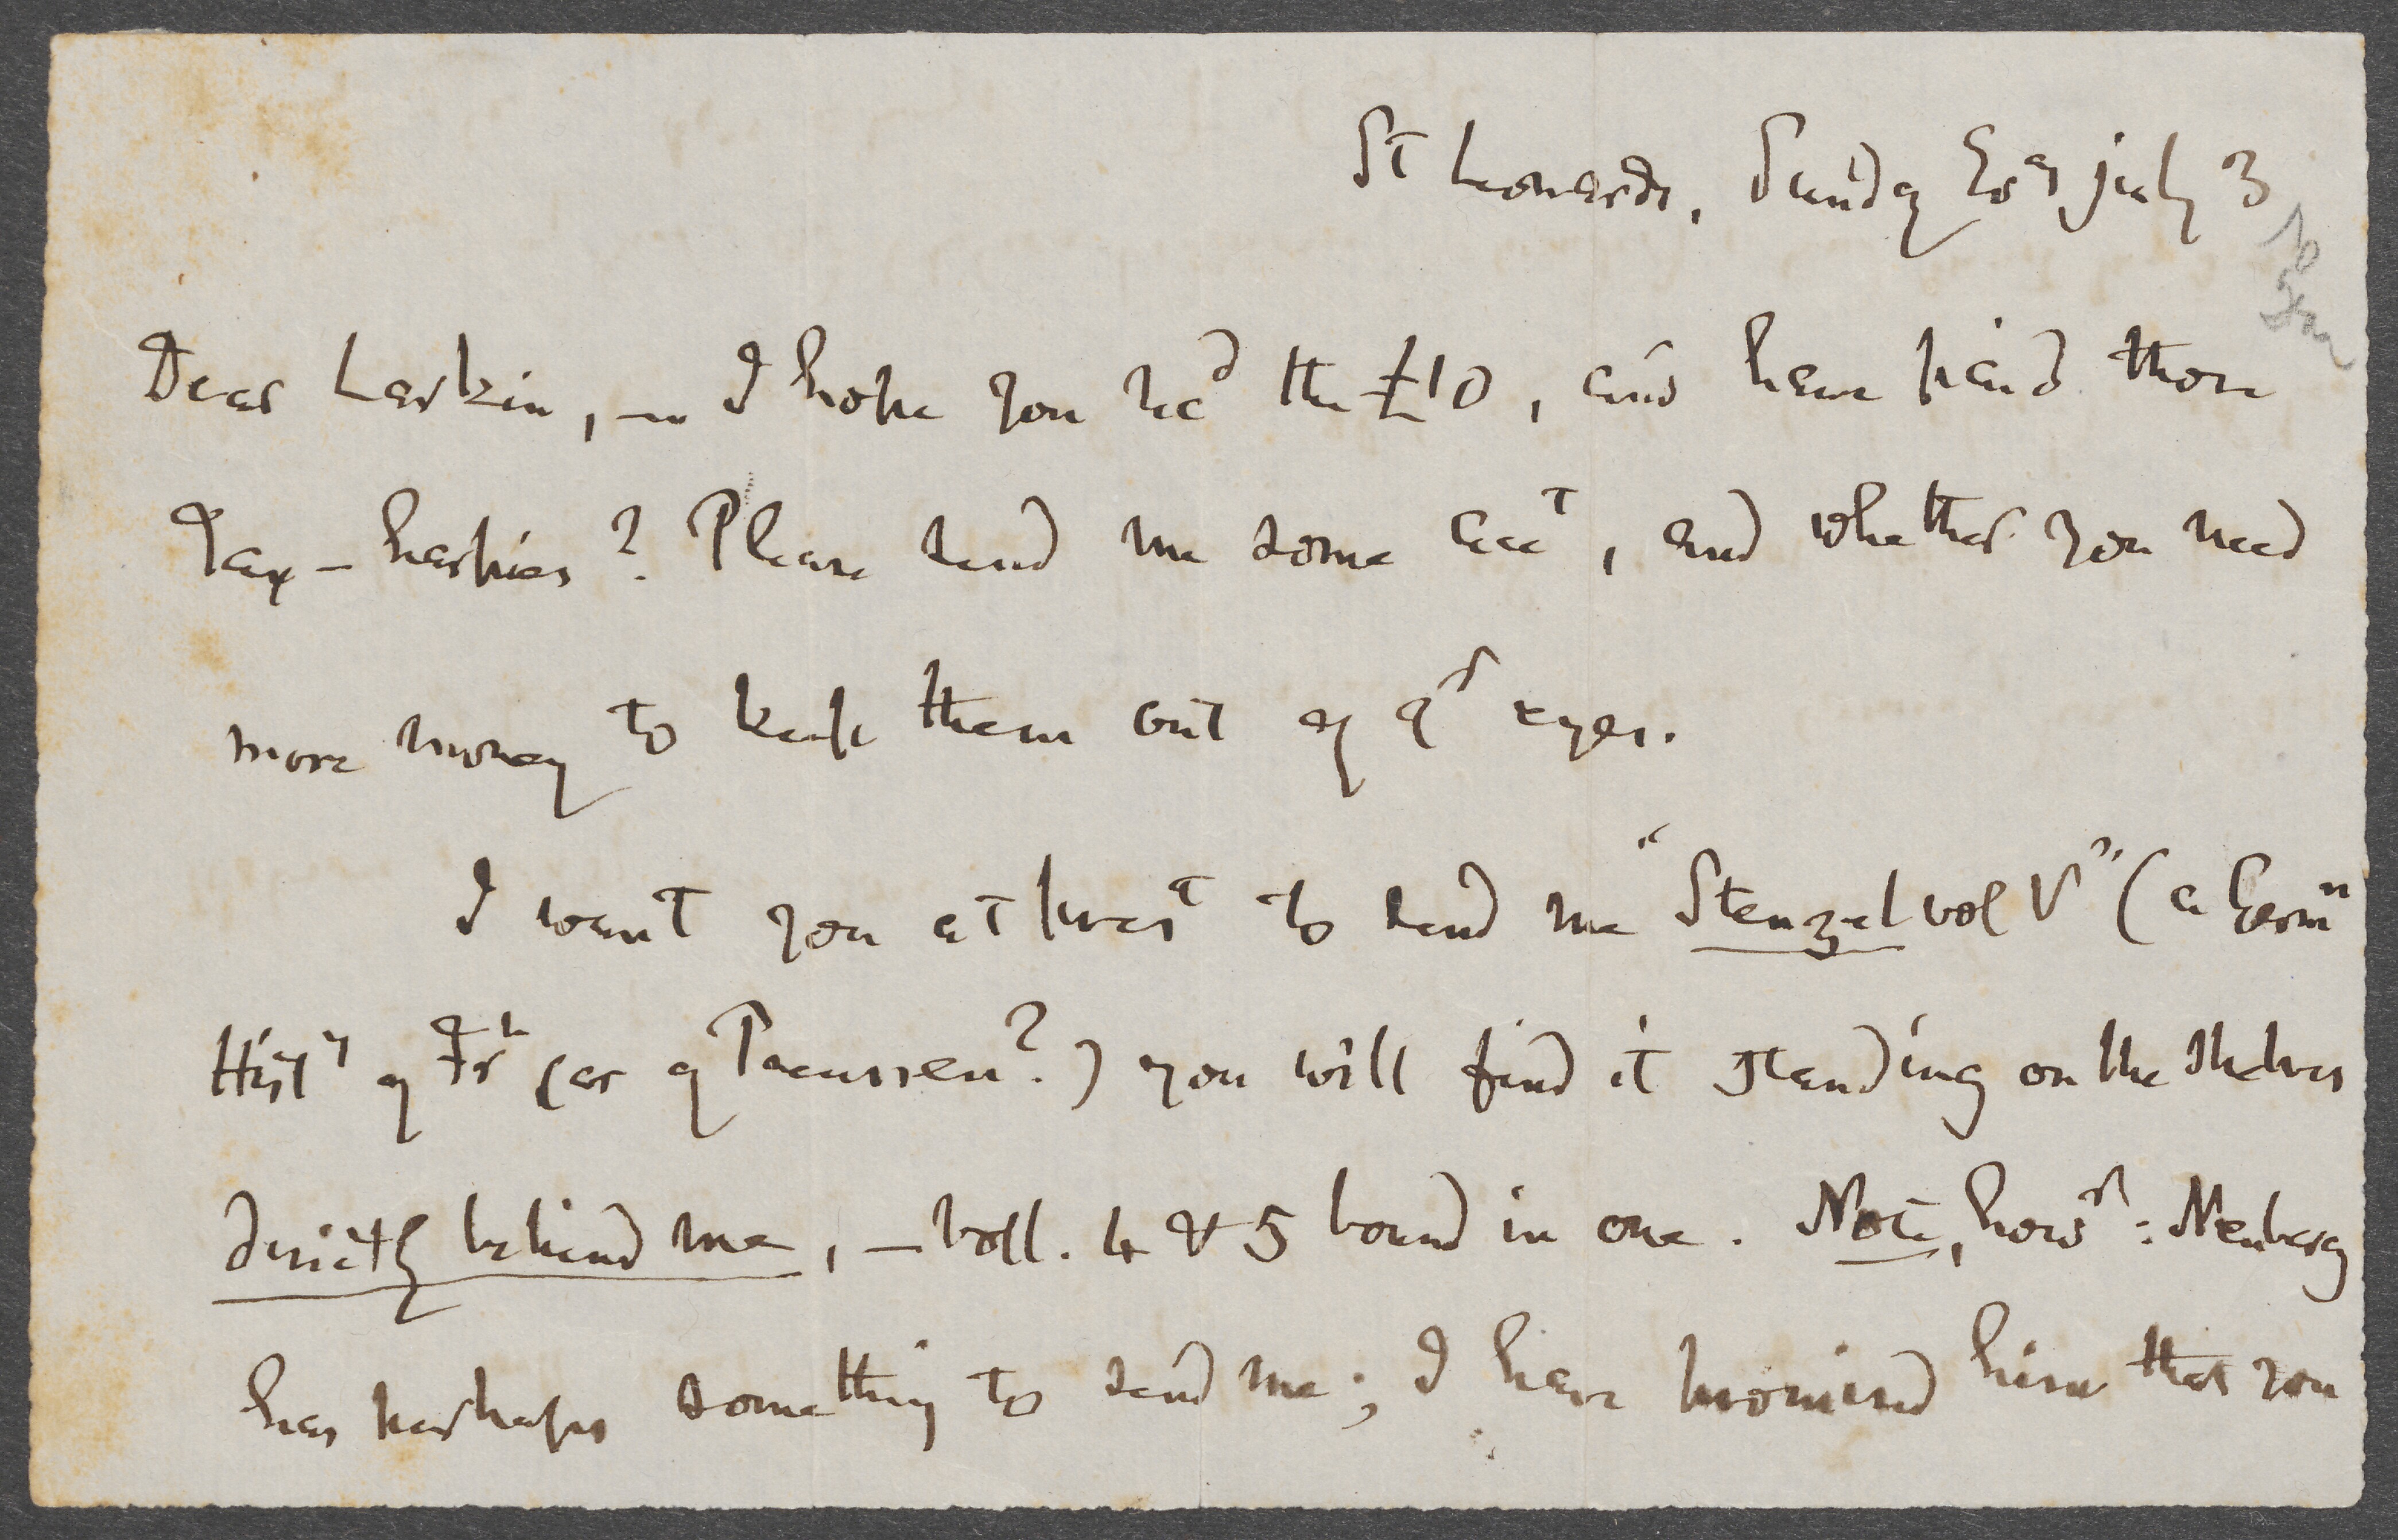 St Leonards, Sundy Evg july 3
Dear Larkin, — I hope you recd the £10, and have paid those
Tax-harpies? Please send me some acct, and whether you need
more money to keep them out of yr eyes.
I want you at prest to send me "Stenzel vol V" (a Germn
Histy of Frh (or of Preussen?) you will find it standing on the shelves
directly behind me, — voll. 4 & 5 bound in one. Note, howr: Neuberg
has perhaps something to send me; I have promised him that you
No